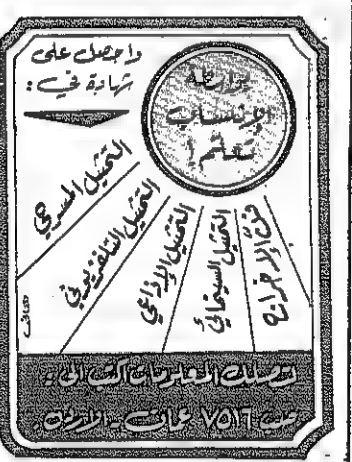 بواسطة
الإنتساب
تعلّم!
واحصل على
شهادة في:
التمثيل المسرحي
التمثيل التلفزيوني
التمثيل الإذاعي
التمثيل السينمائي
فن الإخراج
لتصلك المعلومات اكتب الى:
ص.ب ٧٥١٦ عمان - الاردن